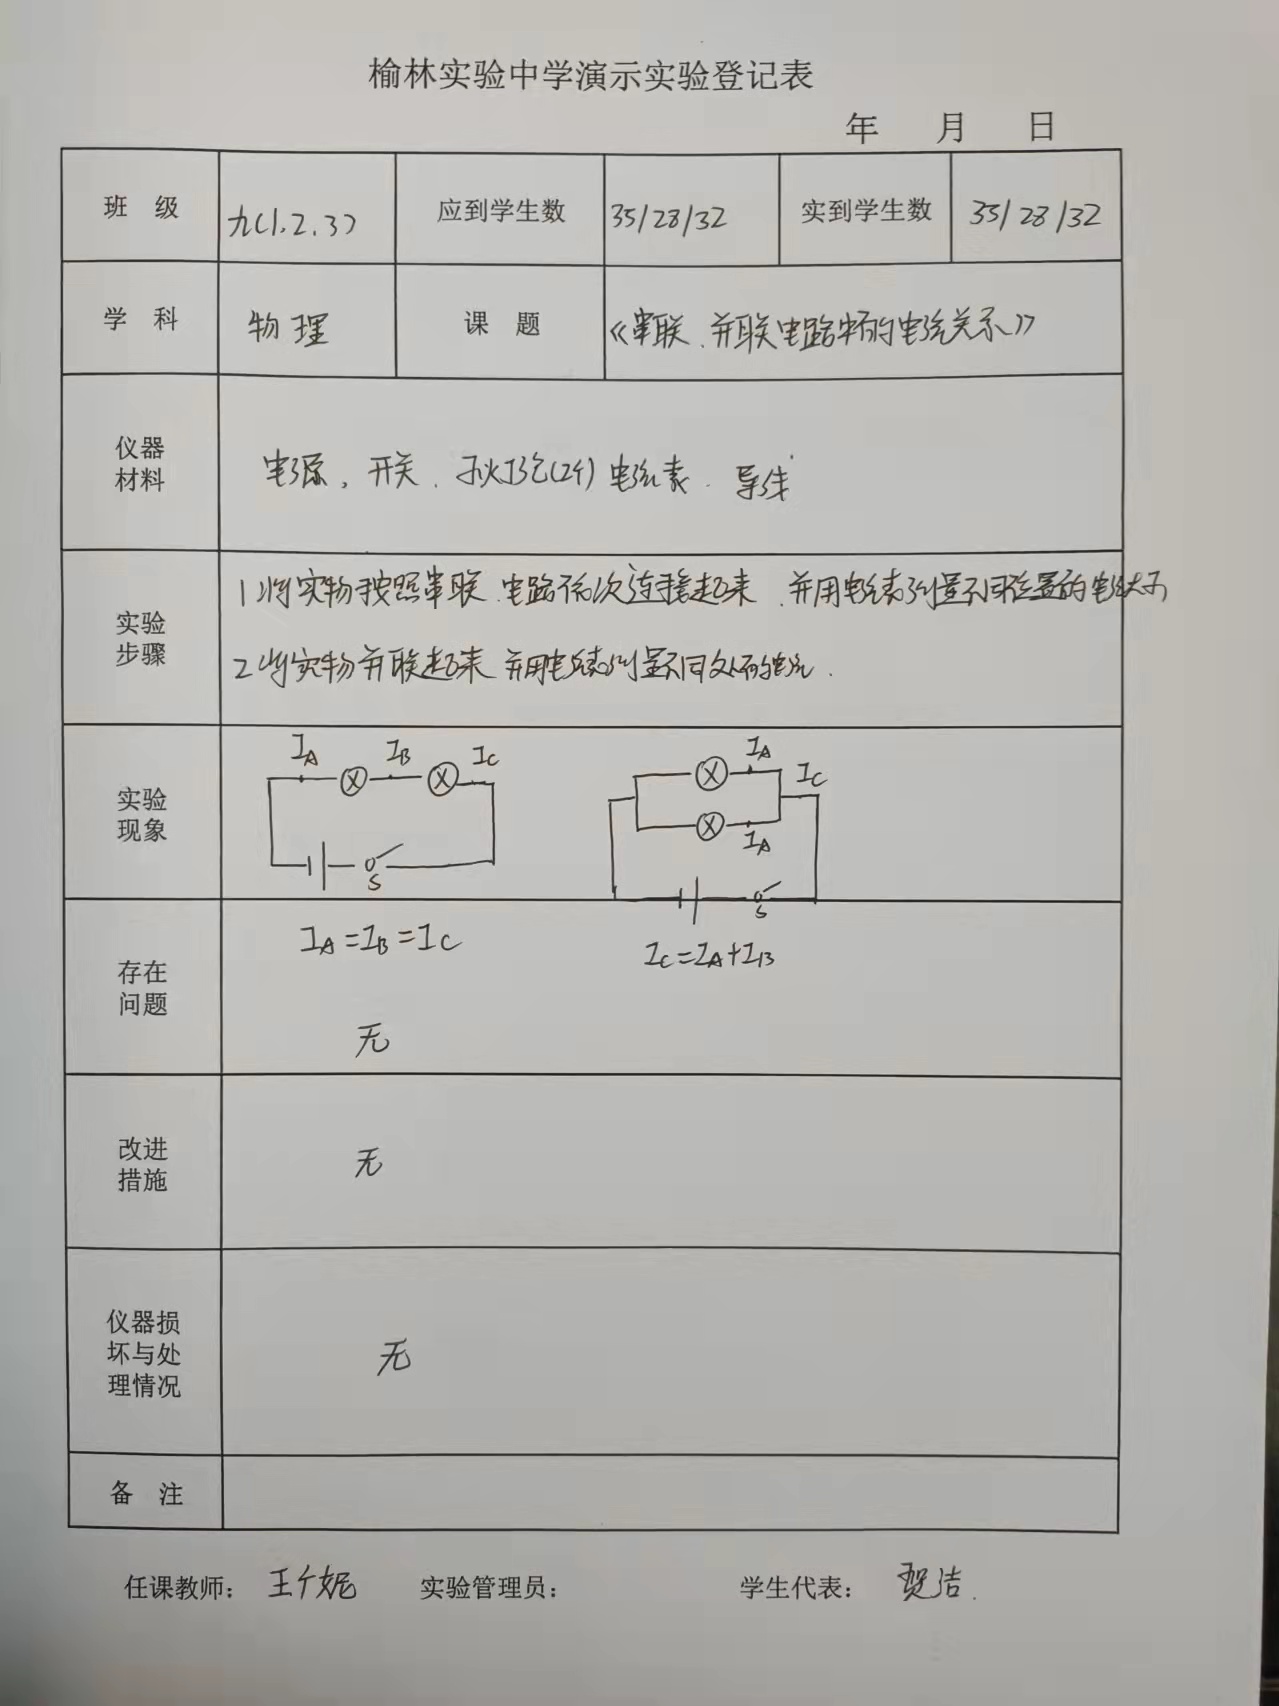 榆林实验中学演示实验登记表
年 月 日
班 级 九(1.2.3) 应到学生数 35/28/32 实到学生数 35/28/32
学 科 物理 课 题 《串联、并联电路中的电流关系》
仪器
材料
电源, 开关. 小灯泡(2个) 电流表. 导线
实验
步骤
1 将实物按照串联.电路依次连接起来.并用电流表测量不同位置的电流大小
2 将实物并联起来 并用电流表测量不同处的电流.
实验
现象
I_A I_B I_C
S
I_A
I_C
I_A
S
存在
问题
I_A=I_B=I_C
I_C=I_A+I_B
无
改进
措施
无
仪器损
坏与处
理情况
无
备 注
任课教师: 王 妮 实验管理员: 学生代表: 贺洁.